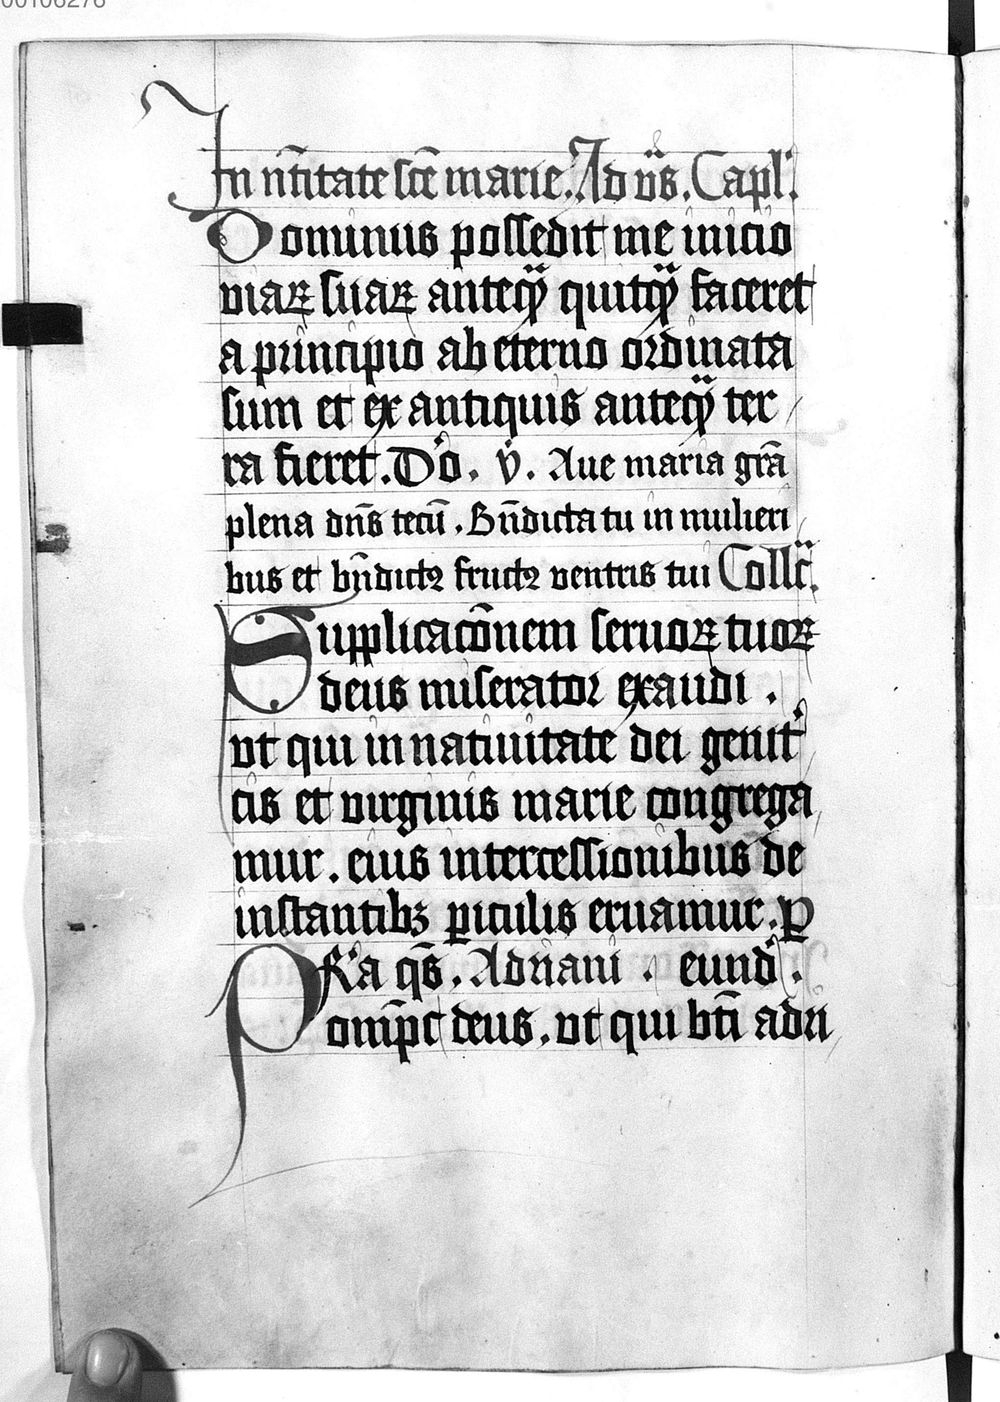 00106276
In n̄titate sc̄e marie. Ad vr̄s. Capl'.
Dominus possedit me inicio
viaꝝ suaꝝ anteqͣꝫ quitqͣꝫ faceret
a principio ab eterno ordinata
sum et ex antiquis anteqͣꝫ ter
ra fieret. Dͦo. v̇. Aue maria gr̄a
plena dn̄s tecū. Bn̄dicta tu in mulieri
bus et bn̄dictꝰ fructꝰ ventris tui Collc̄.
Supplicac̄onem seruoꝝ tuoꝝ
deus miserator exaudi.
vt qui in natiuitate dei genit
cis et virginis marie congrega
mur. eius intercessionibus de
instantibꝫ ꝑiculis eruamur. ꝑ
Pͬra qs̄. Adriani. eund'.
omp̄c deus. vt qui bt̄i adri